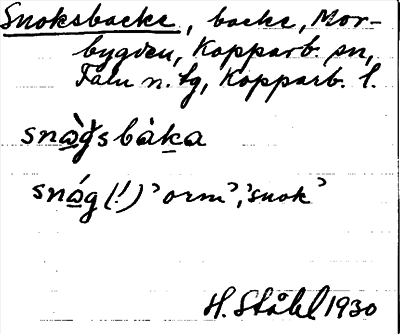 Snoksbacke, backe, Mor-
bygden, Kopparb. sn,
Falu n. tg, Kopparb. l.
snàg̀sbàka
snág (!) ’orm’, ’snok’
H. Ståhl 1930